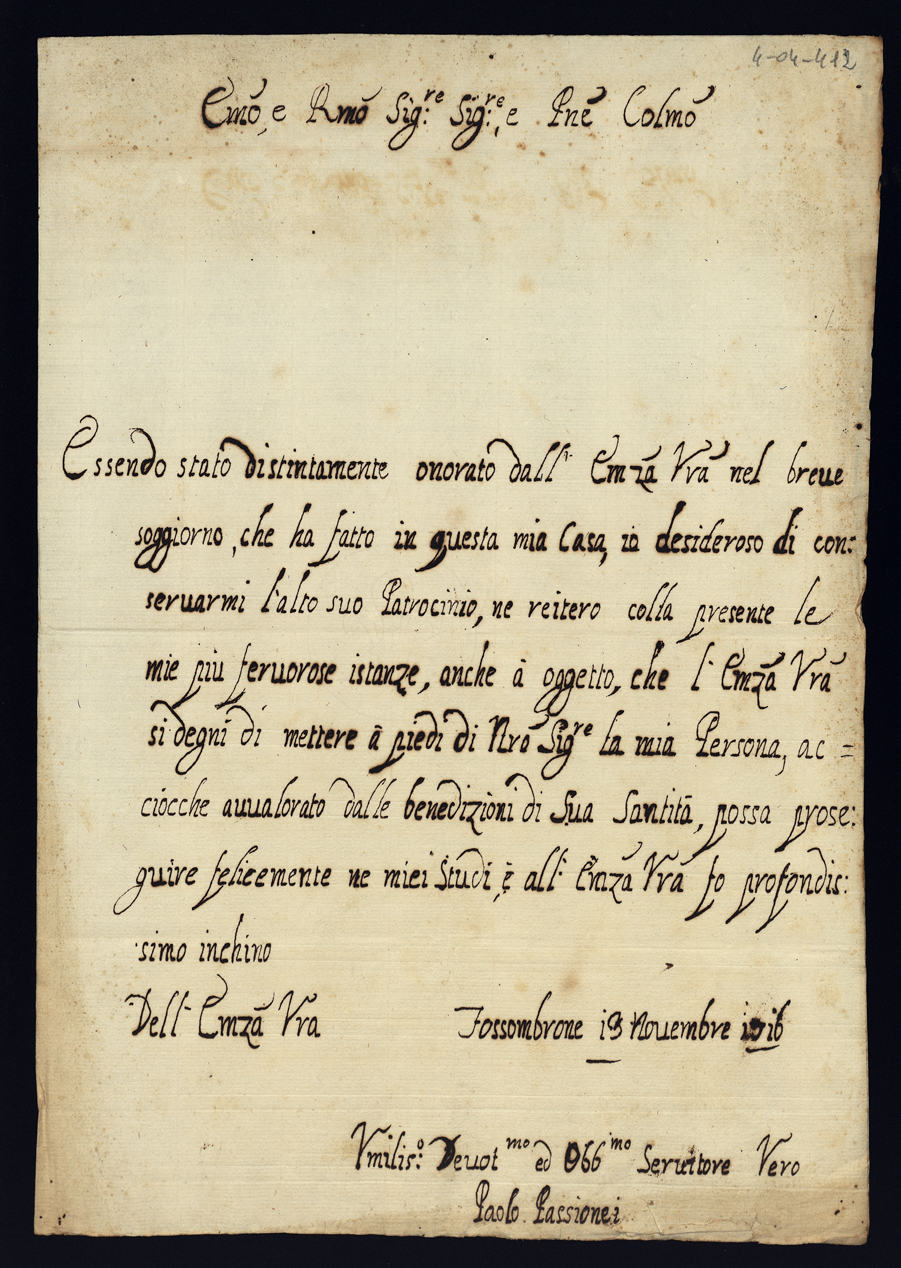 4-04-412
Emõ, e Rmõ Sig:re Sig:re, e Pnẽ Colmõ
Essendo stato distintamente onorato dall' Emzã Vrã nel breue
soggiorno, che ha fatto in questa mia Casa, io desideroso di con:
seruarmi l'alto suo Patrocinio, ne reitero colla presente le
mie piu feruorose istanze, anche à oggetto, che l' Emzã Vrã
si degni di mettere à piedi di Nrõ Sigre la mia Persona, ac=
ciocche auualorato dalle benedizioni di Sua Santità, possa prose:
guire felicemente ne miei Studi, è all' Emzã Vrã fo profondis:
simo inchino
Dell' Emzã Vrã Fossombrone 13 Nouembre
Vmilis:o Deuotmo ed Obbimo Seruitore Vero
Paolo Passionei